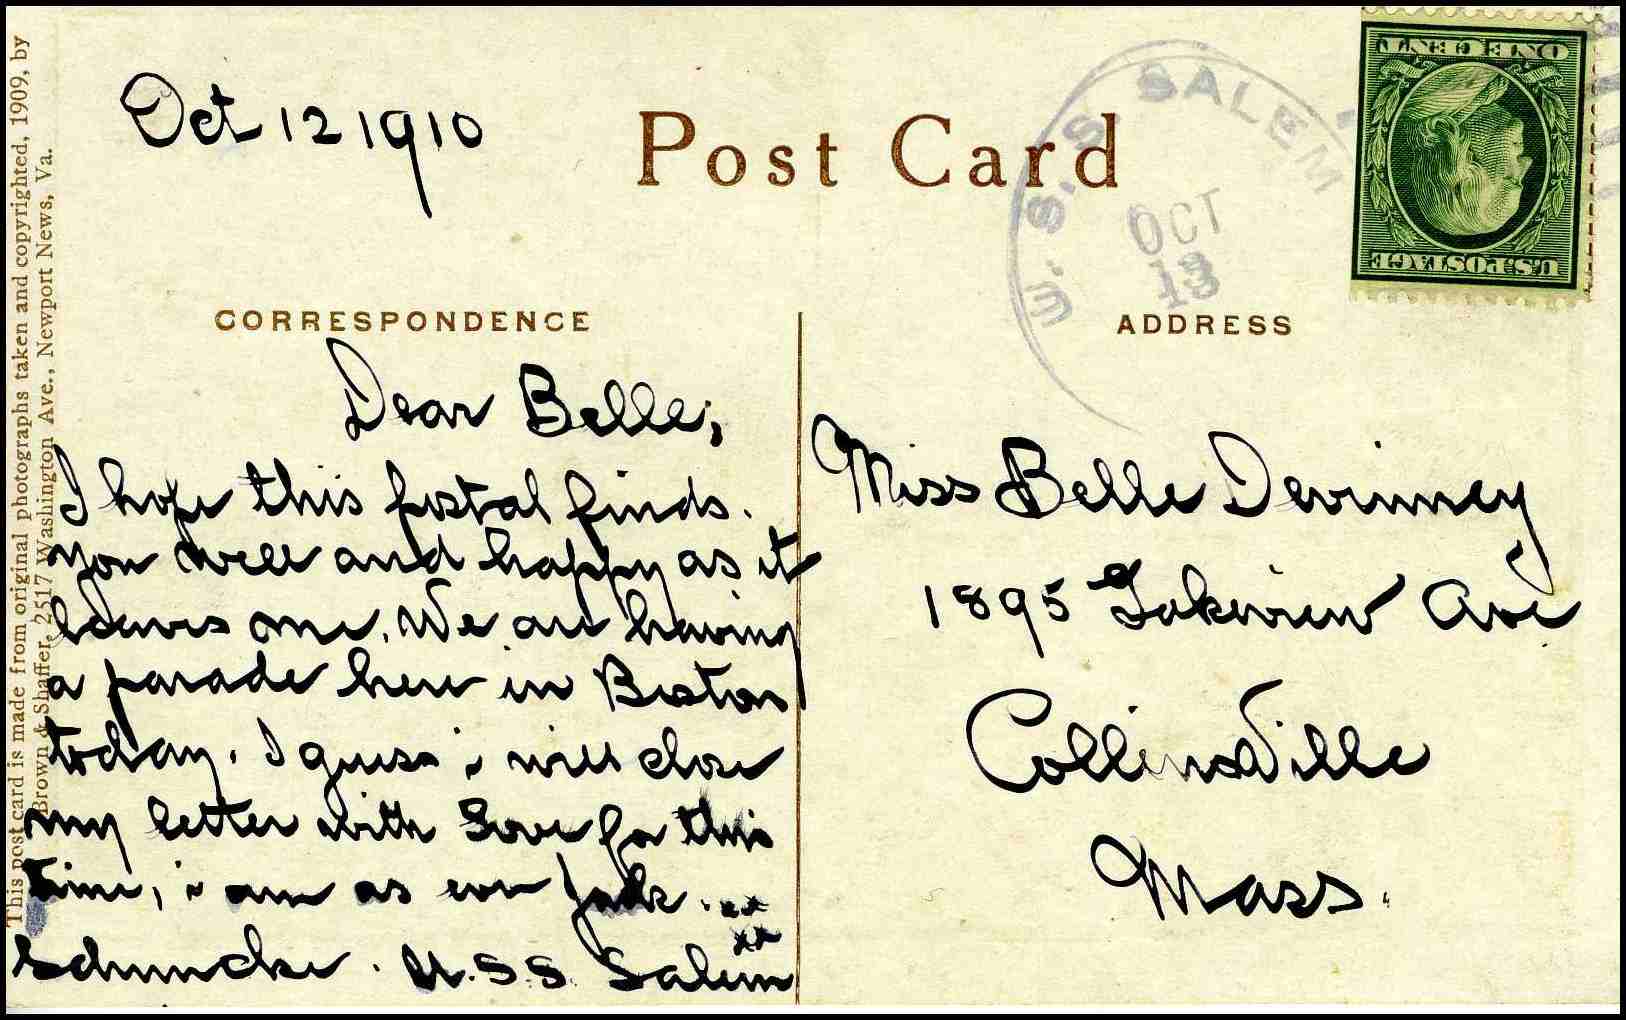 Oct 12 1910
Post Card
U.S.S. SALEM
OCT
13
ONE CENT
U.S. POSTAGE
CORRESPONDENCE
Dear Belle,
I hope this postal finds.
you well and happy as it
leaves me. We are having
a parade here in Boston
today. I guess i will close
my letter with Love for this
time, i am as ever Jack.
xx
xx
Schumcke. U.S.S. Salem
ADDRESS
Miss Belle Devinney
1895 Lakeview Ave
CollinsVille
Mass.
This post card is made from original photographs taken and copyrighted, 1909, by
Brown & Shaffer, 2517 Washington Ave., Newport News, Va.